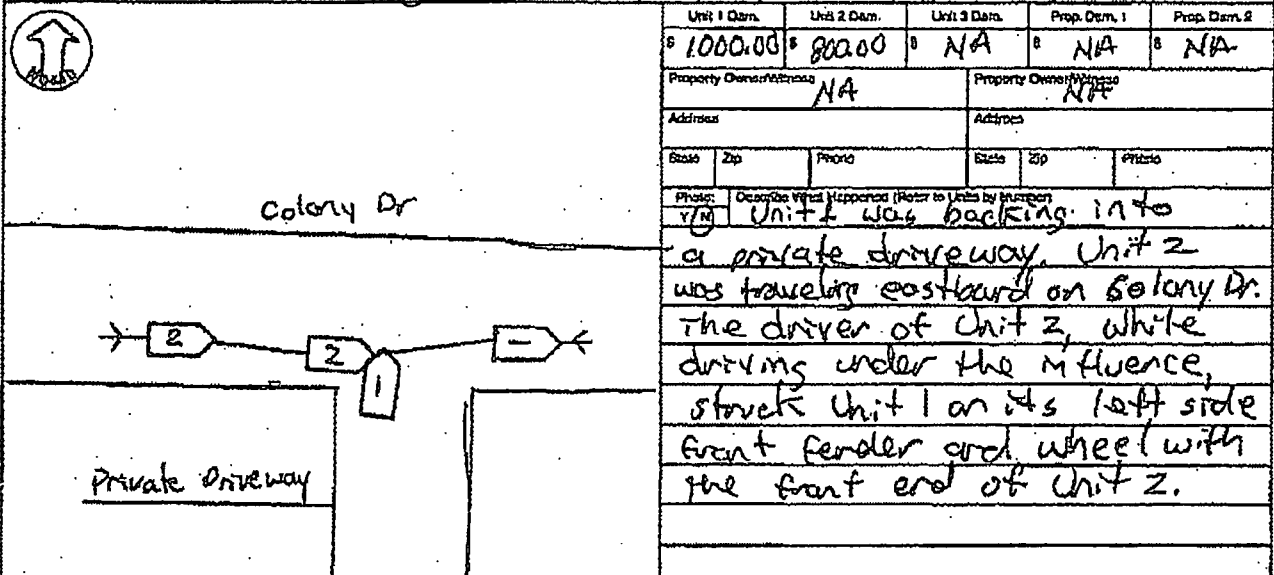 NORTH
Colony Dr
2
2
1
1
Private Driveway
Unit 1 Dam. Unit 2 Dam. Unit 3 Dam. Prop. Dam. 1 Prop. Dam. 2
$ 1,000.00 $ 800.00 $ NA $ NA $ NA
Property Owner/Witness NA Property Owner/Witness NA
Address Address
State Zip Phone State Zip Phone
Photo: Describe What Happened (Refer to Units by Number)
Y N Unit 1 was backing into
a private driveway. Unit 2
was traveling eastbound on Colony Dr.
The driver of Unit 2, while
driving under the influence,
struck Unit 1 on its left side
front fender and wheel with
the front end of Unit 2.